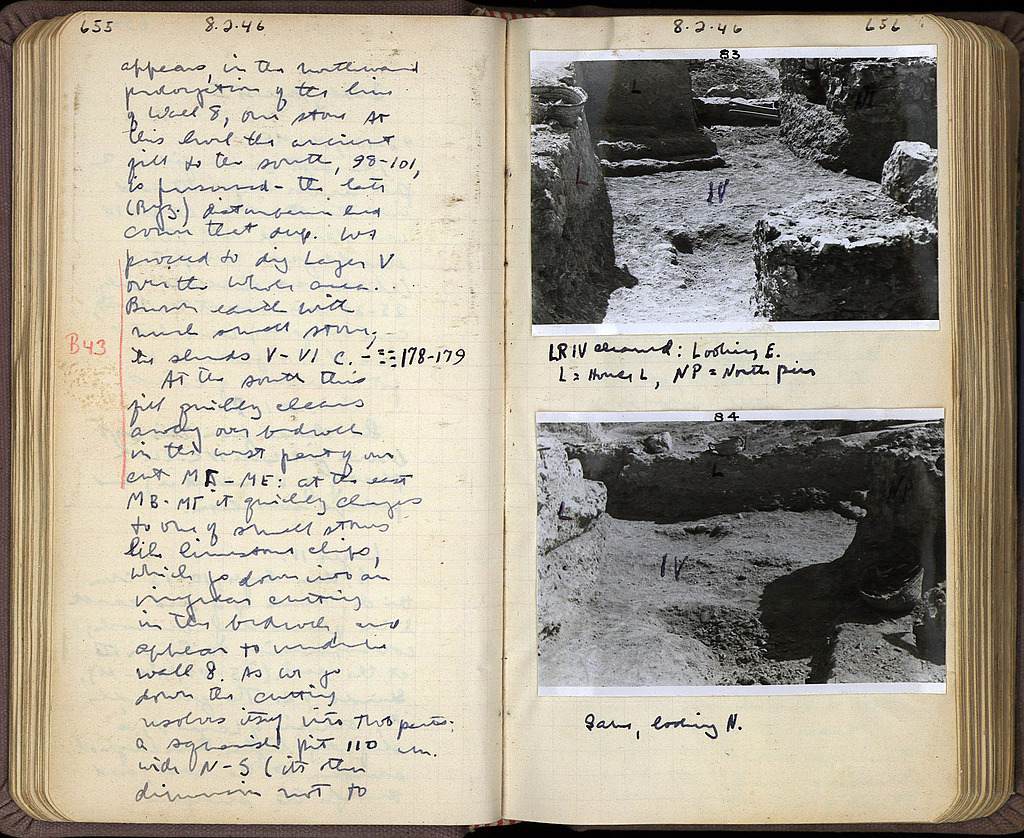 655
8.2.46
appears, in the northward
prolongation of the line
of Wall 8, one stone. At
this level the ancient
fill to the south, 98-101,
is preserved - the late
(Byz.) disturbance did
not go down that deep. We
proceed to dig Layer V
over the whole area.
Brown earth with
much small stone,
the sherds V-VI c. - 178-179
B43
At the south this
fill quickly cleans
away over bedrock
in the west part of our
cut MA-ME: at the east
MB-MF it quickly changes
to one of small stones
like limestone chips,
which go down into an
irregular cutting
in the bedrock and
appear to underlie
wall 8. As we go
down the cutting
resolves itself into two parts:
a squarish pit 110 cm.
wide N-S (its other
dimension not to
8.2.46
656
83
L
NP
L
IV
LR IV cleaned: Looking E.
L = House L, NP = North pier
84
L
L
NP
IV
Same, looking N.